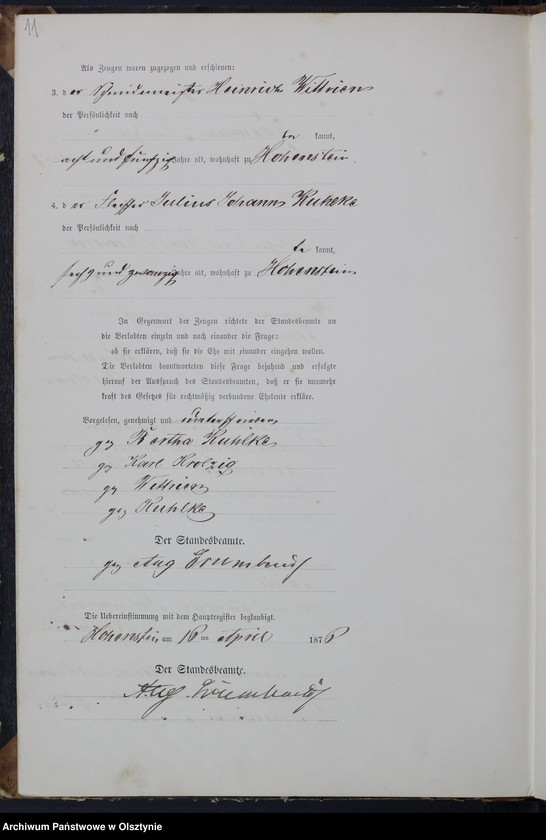 11
Als Zeugen waren zugezogen und erschienen:
3. d er Schneidermeister Heinrich Wittrien
der Persönlichkeit nach
be kannt,
acht und fünfzig Jahre alt, wohnhaft zu Hohenstein.
4. d er Fleischer Julius Johann Kuhlke
der Persönlichkeit nach
be kannt,
sechs und zwanzig Jahre alt, wohnhaft zu Hohenstein
In Gegenwart der Zeugen richtete der Standesbeamte an
die Verlobten einzeln und nach einander die Frage:
ob sie erklären, daß sie die Ehe mit einander eingehen wollen.
Die Verlobten beantworteten diese Frage bejahend und erfolgte
hierauf der Ausspruch des Standesbeamten, daß er sie nunmehr
kraft des Gesetzes für rechtmäßig verbundene Eheleute erkläre.
Vorgelesen, genehmigt und unterschrieben
gez Bertha Kuhlke
gez Karl Krolzig
gez Wittrien
gez Kuhlke
Der Standesbeamte.
gez Aug
Die Uebereinstimmung mit dem Hauptregister beglaubigt.
Hohenstein am 16 ten April 1876
Der Standesbeamte.
Aug
Archiwum Państwowe w Olsztynie